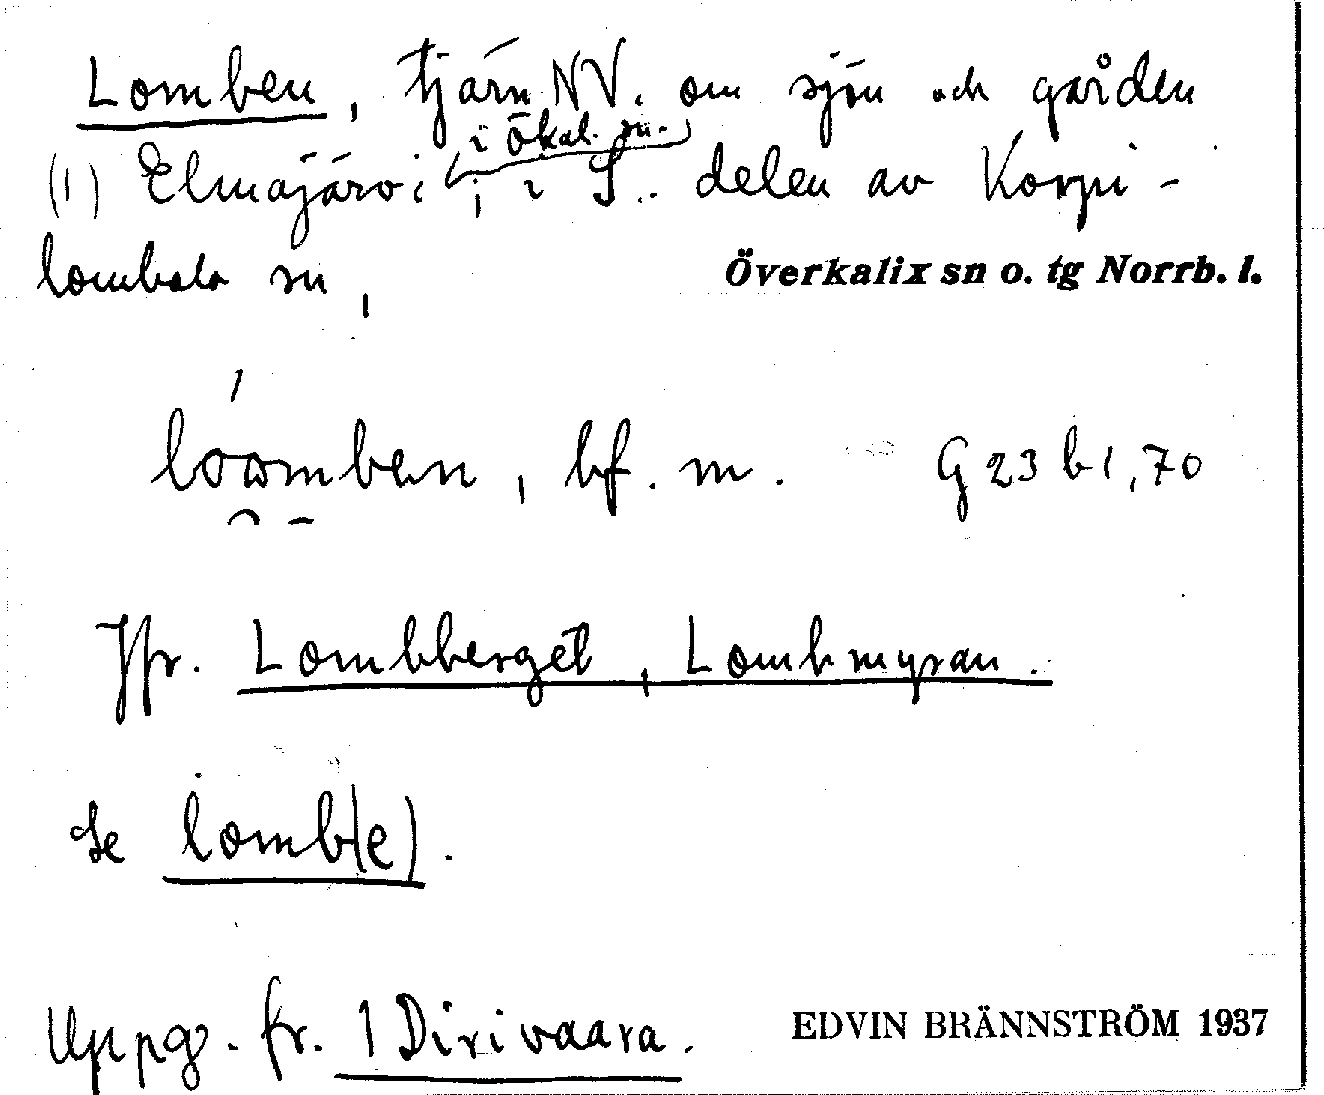 Lomben, tjärn NV. om sjön och gården
i Ökal. sn.
(1) Elmajärvi, i S. delen av Korpi-
lombolo sn,
Överkalix sn o. tg Norrb. l.
bf. m. G 23 b 1, 70
Jfr. Lombberget, Lombmyran.
Se lomb(e).
Uppg. fr. 1 Dirivaara.
EDVIN BRÄNNSTRÖM 1937